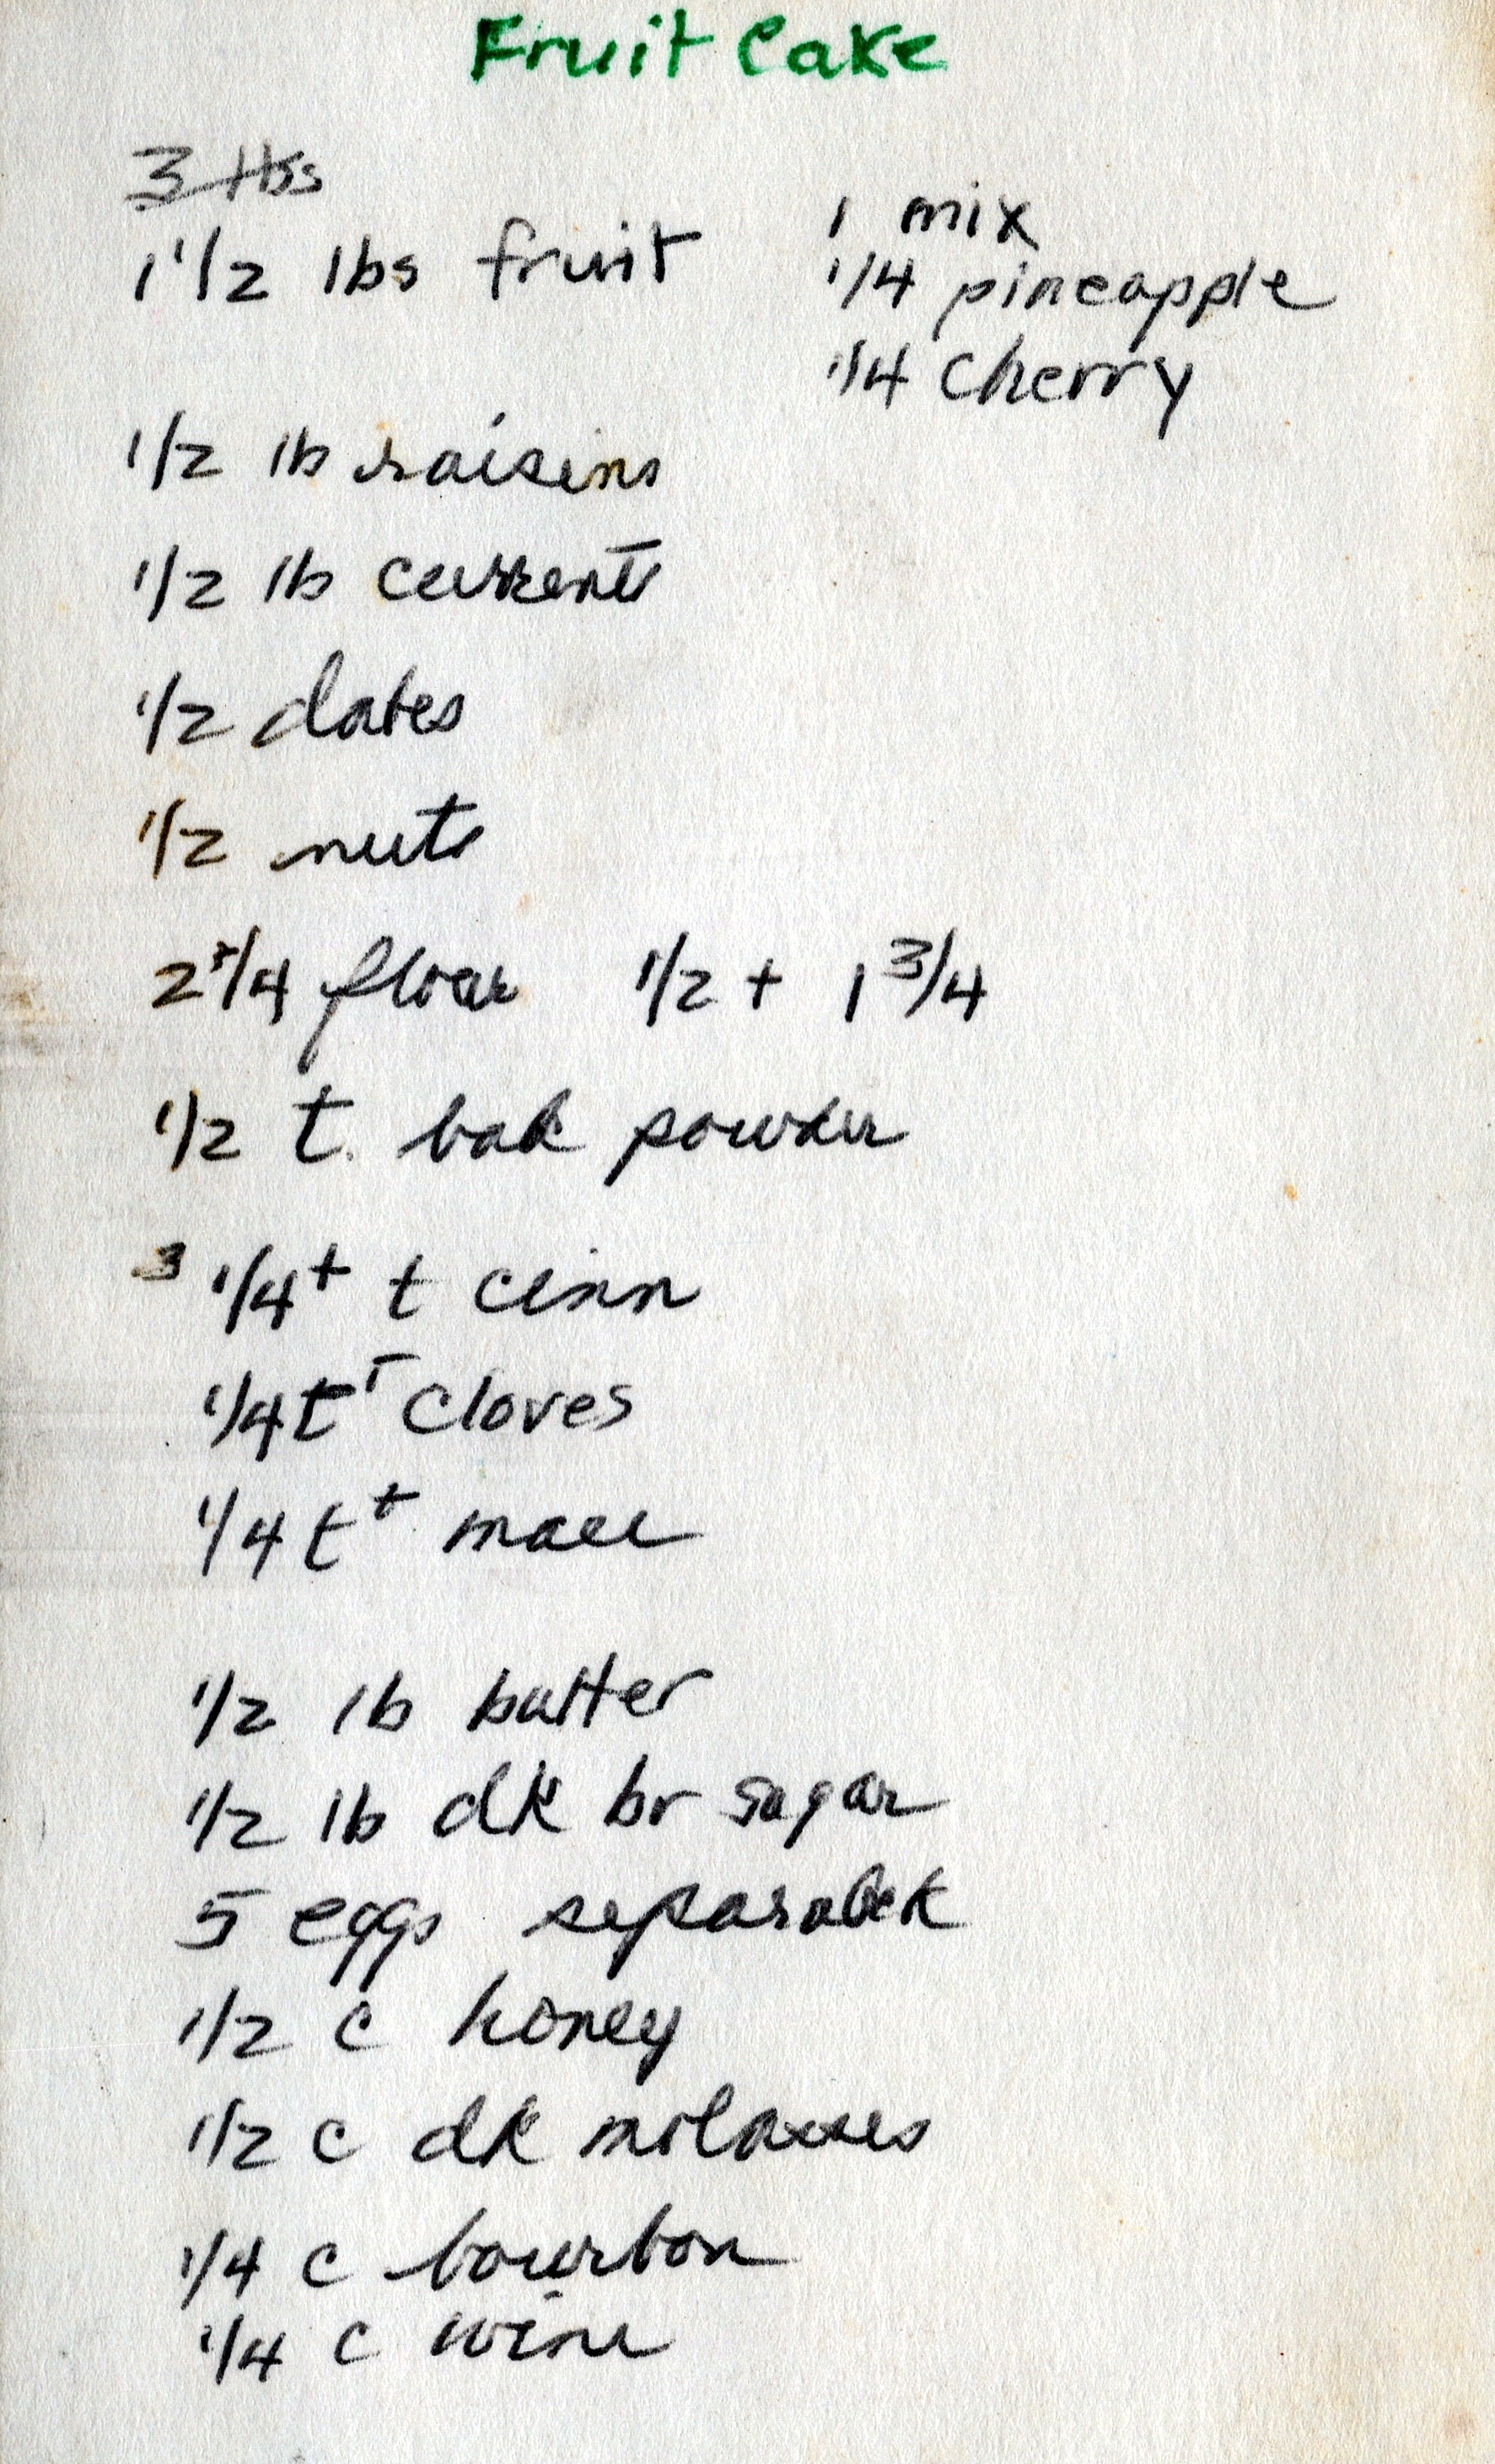 Fruit Cake
3 lbs
1 1/2 lbs fruit
1 mix
1/4 pineapple
1/4 cherry
1/2 lb raisins
1/2 lb currents
1/2 dates
1/2 nuts
2 1/4 flour 1/2 + 1 3/4
1/2 t. bak powder
3 1/4+ t cinn
1/4 t cloves
1/4 t+ mace
1/2 lb butter
1/2 lb dk br sugar
5 eggs
1/2 c honey
1/2 c dk molasses
1/4 c bourbon
1/4 c wine